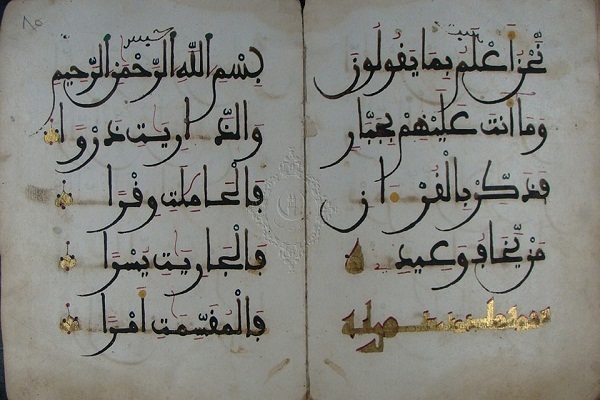 نَّحْنُ أَعْلَمُ بِمَا يَقُولُونَ
وَمَا أَنتَ عَلَيْهِم بِجَبَّارٍ
فَذَكِّرْ بِالْقُرْءَانِ
مَن يَخَافُ وَعِيدِ
بِسْمِ اللَّهِ الرَّحْمَٰنِ الرَّحِيمِ
وَالذَّارِيَٰتِ ذَرْوًا
فَالْحَامِلَٰتِ وِقْرًا
فَالْجَارِيَٰتِ يُسْرًا
فَالْمُقَسِّمَٰتِ أَمْرًا